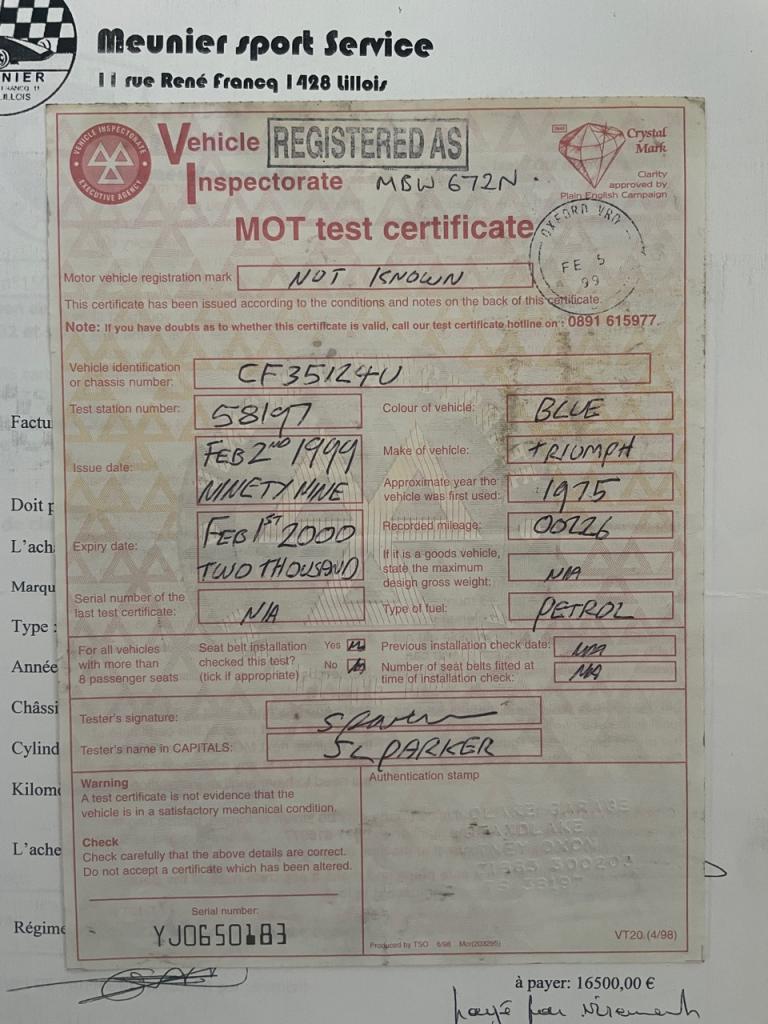 Meunier sport Service
11 rue René Francq 1428 Lillois
NIER
LILLOIS
VEHICLE INSPECTORATE
EXECUTIVE AGENCY
Vehicle
Inspectorate
REGISTERED AS
MBW 672N.
Crystal
Mark
Clarity
approved by
Plain English Campaign
MOT test certificate
OXFORD VRO
FE 5
99
Motor vehicle registration mark NOT KNOWN
This certificate has been issued according to the conditions and notes on the back of this certificate.
Note: If you have doubts as to whether this certificate is valid, call our test certificate hotline on : 0891 615977.
Vehicle identification
or chassis number: CF35124U
Test station number: 58197
Colour of vehicle: BLUE
Issue date: FEB 2ND 1999
NINETY NINE
Make of vehicle: TRIUMPH
Approximate year the
vehicle was first used: 1975
Expiry date: FEB 1ST 2000
TWO THOUSAND
Recorded mileage: 00226
If it is a goods vehicle,
state the maximum
design gross weight: N/A
Serial number of the
last test certificate: N/A
Type of fuel: PETROL
For all vehicles
with more than
8 passenger seats
Seat belt installation
checked this test?
(tick if appropriate)
Yes
No
Previous installation check date: N/A
Number of seat belts fitted at
time of installation check: N/A
Tester's signature:
Tester's name in CAPITALS: SL PARKER
Warning
A test certificate is not evidence that the
vehicle is in a satisfactory mechanical condition.
Check
Check carefully that the above details are correct.
Do not accept a certificate which has been altered.
Authentication stamp
GARAGE
OXON
Serial number:
YJ0650183
Produced by TSO 6/98
VT20 (4/98)
Factu
Doit p
L'ach
Marqu
Type :
Année
Châssi
Cylind
Kilomé
L'ache
Régime
à payer: 16500,00 €
payé par virement